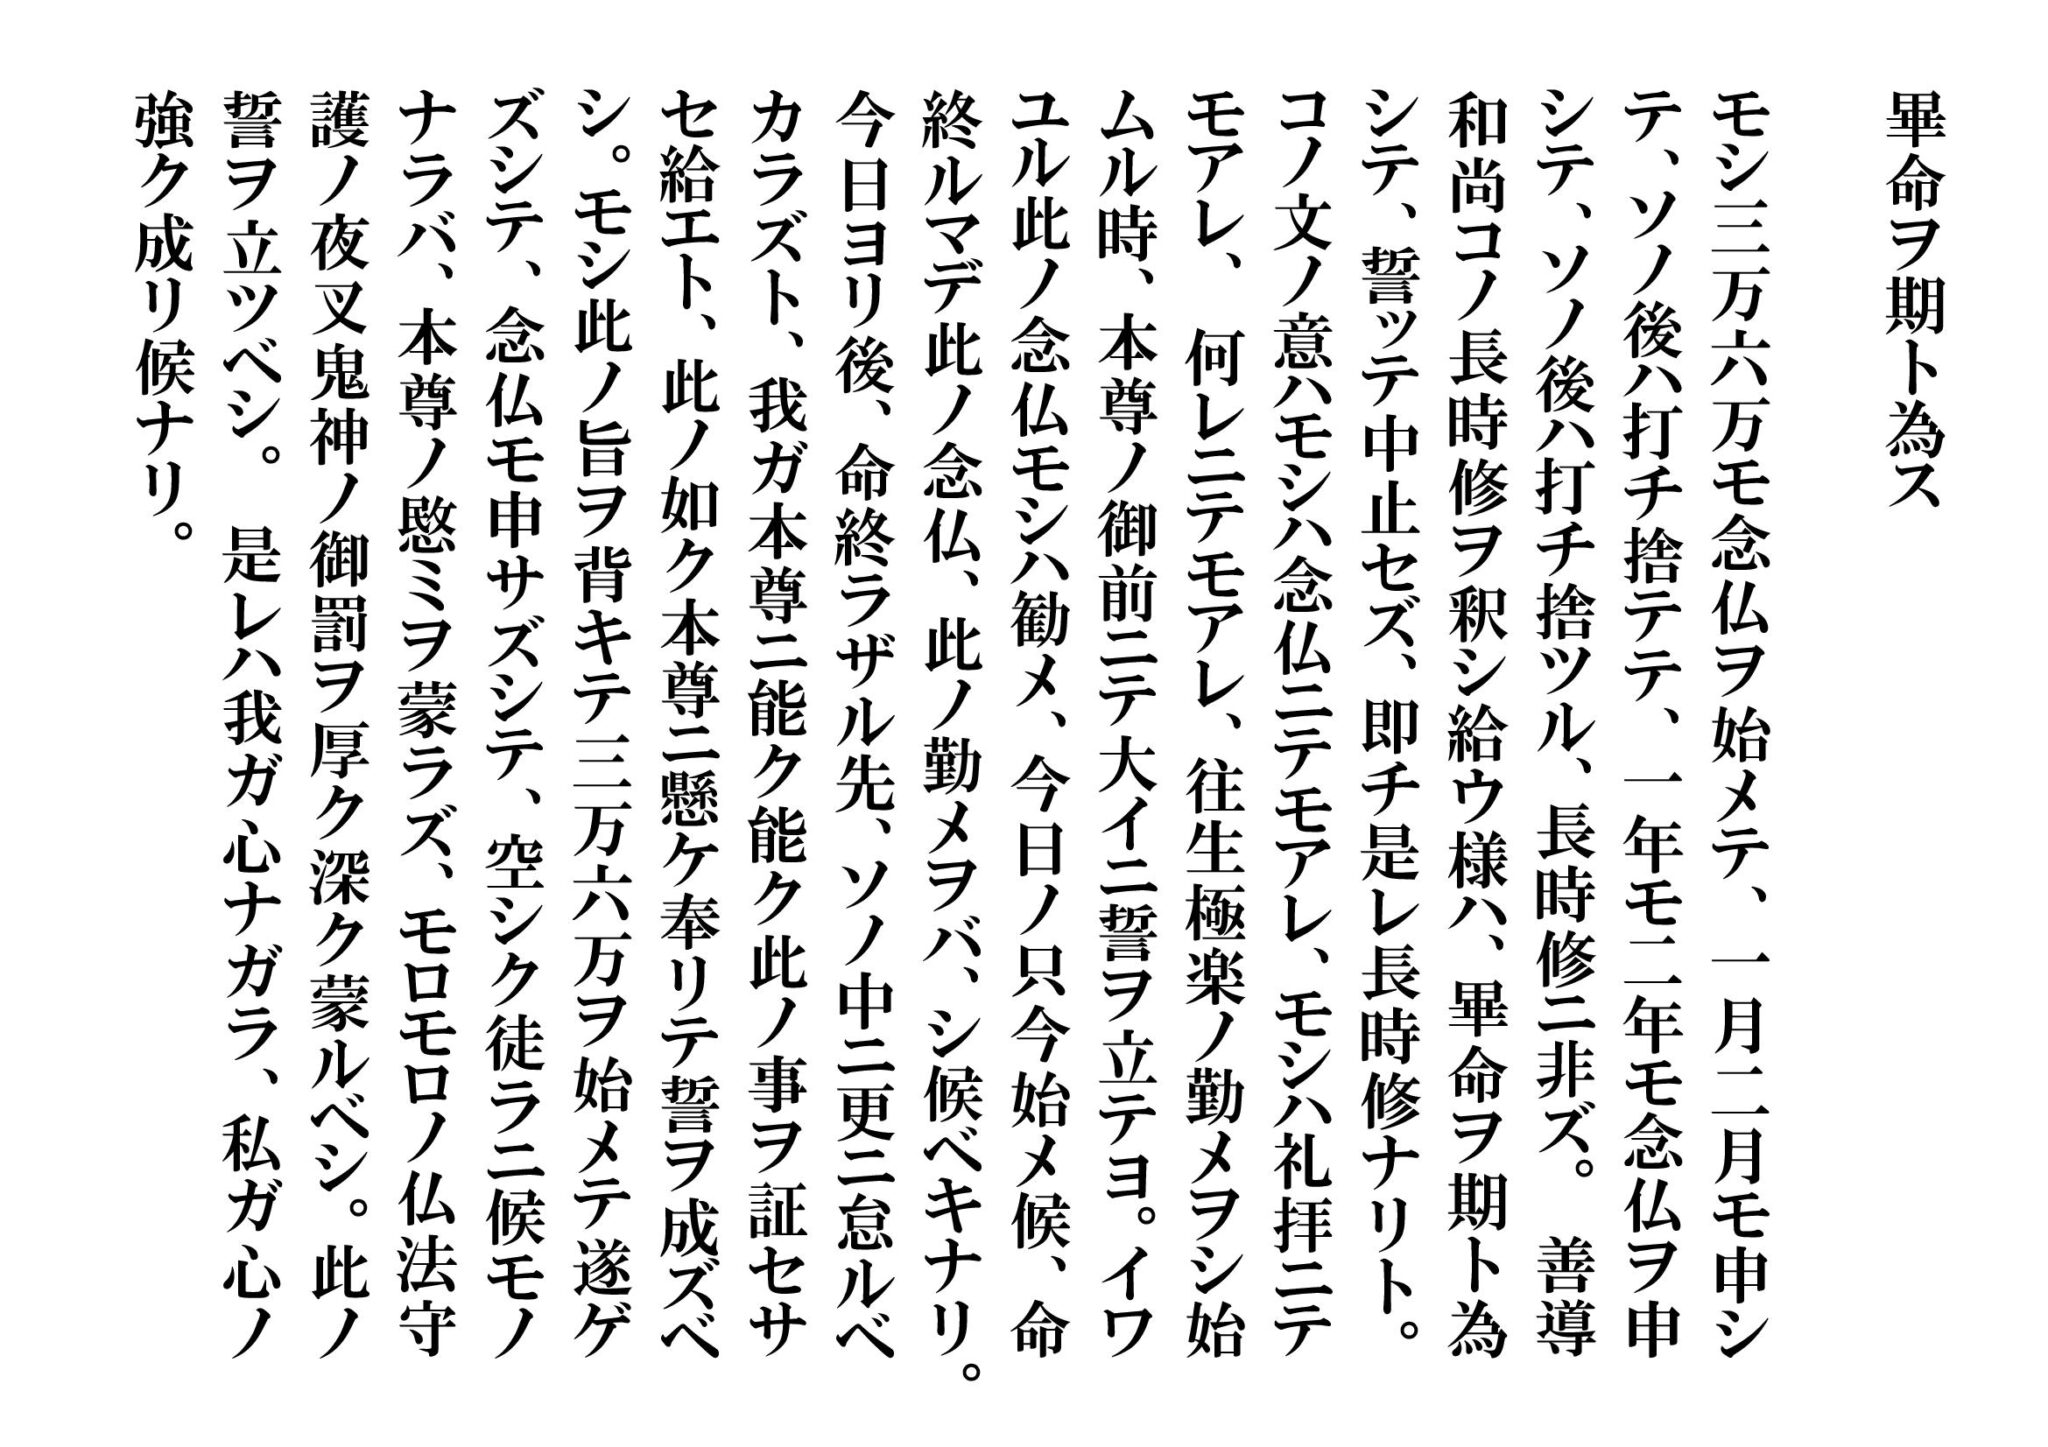 畢命ヲ期ト為ス
モシ三万六万モ念仏ヲ始メテ、一月二月モ申シ
テ、ソノ後ハ打チ捨テテ、一年モ二年モ念仏ヲ申
シテ、ソノ後ハ打チ捨ツル、長時修ニ非ズ。善導
和尚コノ長時修ヲ釈シ給ウ様ハ、畢命ヲ期ト為
シテ、誓ッテ中止セズ、即チ是レ長時修ナリト。
コノ文ノ意ハモシハ念仏ニテモアレ、モシハ礼拝ニテ
モアレ、何レニテモアレ、往生極楽ノ勤メヲシ始
ムル時、本尊ノ御前ニテ大イニ誓ヲ立テヨ。イワ
ユル此ノ念仏モシハ勧メ、今日ノ只今始メ候、命
終ルマデ此ノ念仏、此ノ勤メヲバ、シ候ベキナリ。
今日ヨリ後、命終ラザル先、ソノ中ニ更ニ怠ルベ
カラズト、我ガ本尊ニ能ク能ク此ノ事ヲ証セサ
セ給エト、此ノ如ク本尊ニ懸ケ奉リテ誓ヲ成ズベ
シ。モシ此ノ旨ヲ背キテ三万六万ヲ始メテ遂ゲ
ズシテ、念仏モ申サズシテ、空シク徒ラニ候モノ
ナラバ、本尊ノ愍ミヲ蒙ラズ、モロモロノ仏法守
護ノ夜叉鬼神ノ御罰ヲ厚ク深ク蒙ルベシ。此ノ
誓ヲ立ツベシ。是レハ我ガ心ナガラ、私ガ心ノ
強ク成リ候ナリ。